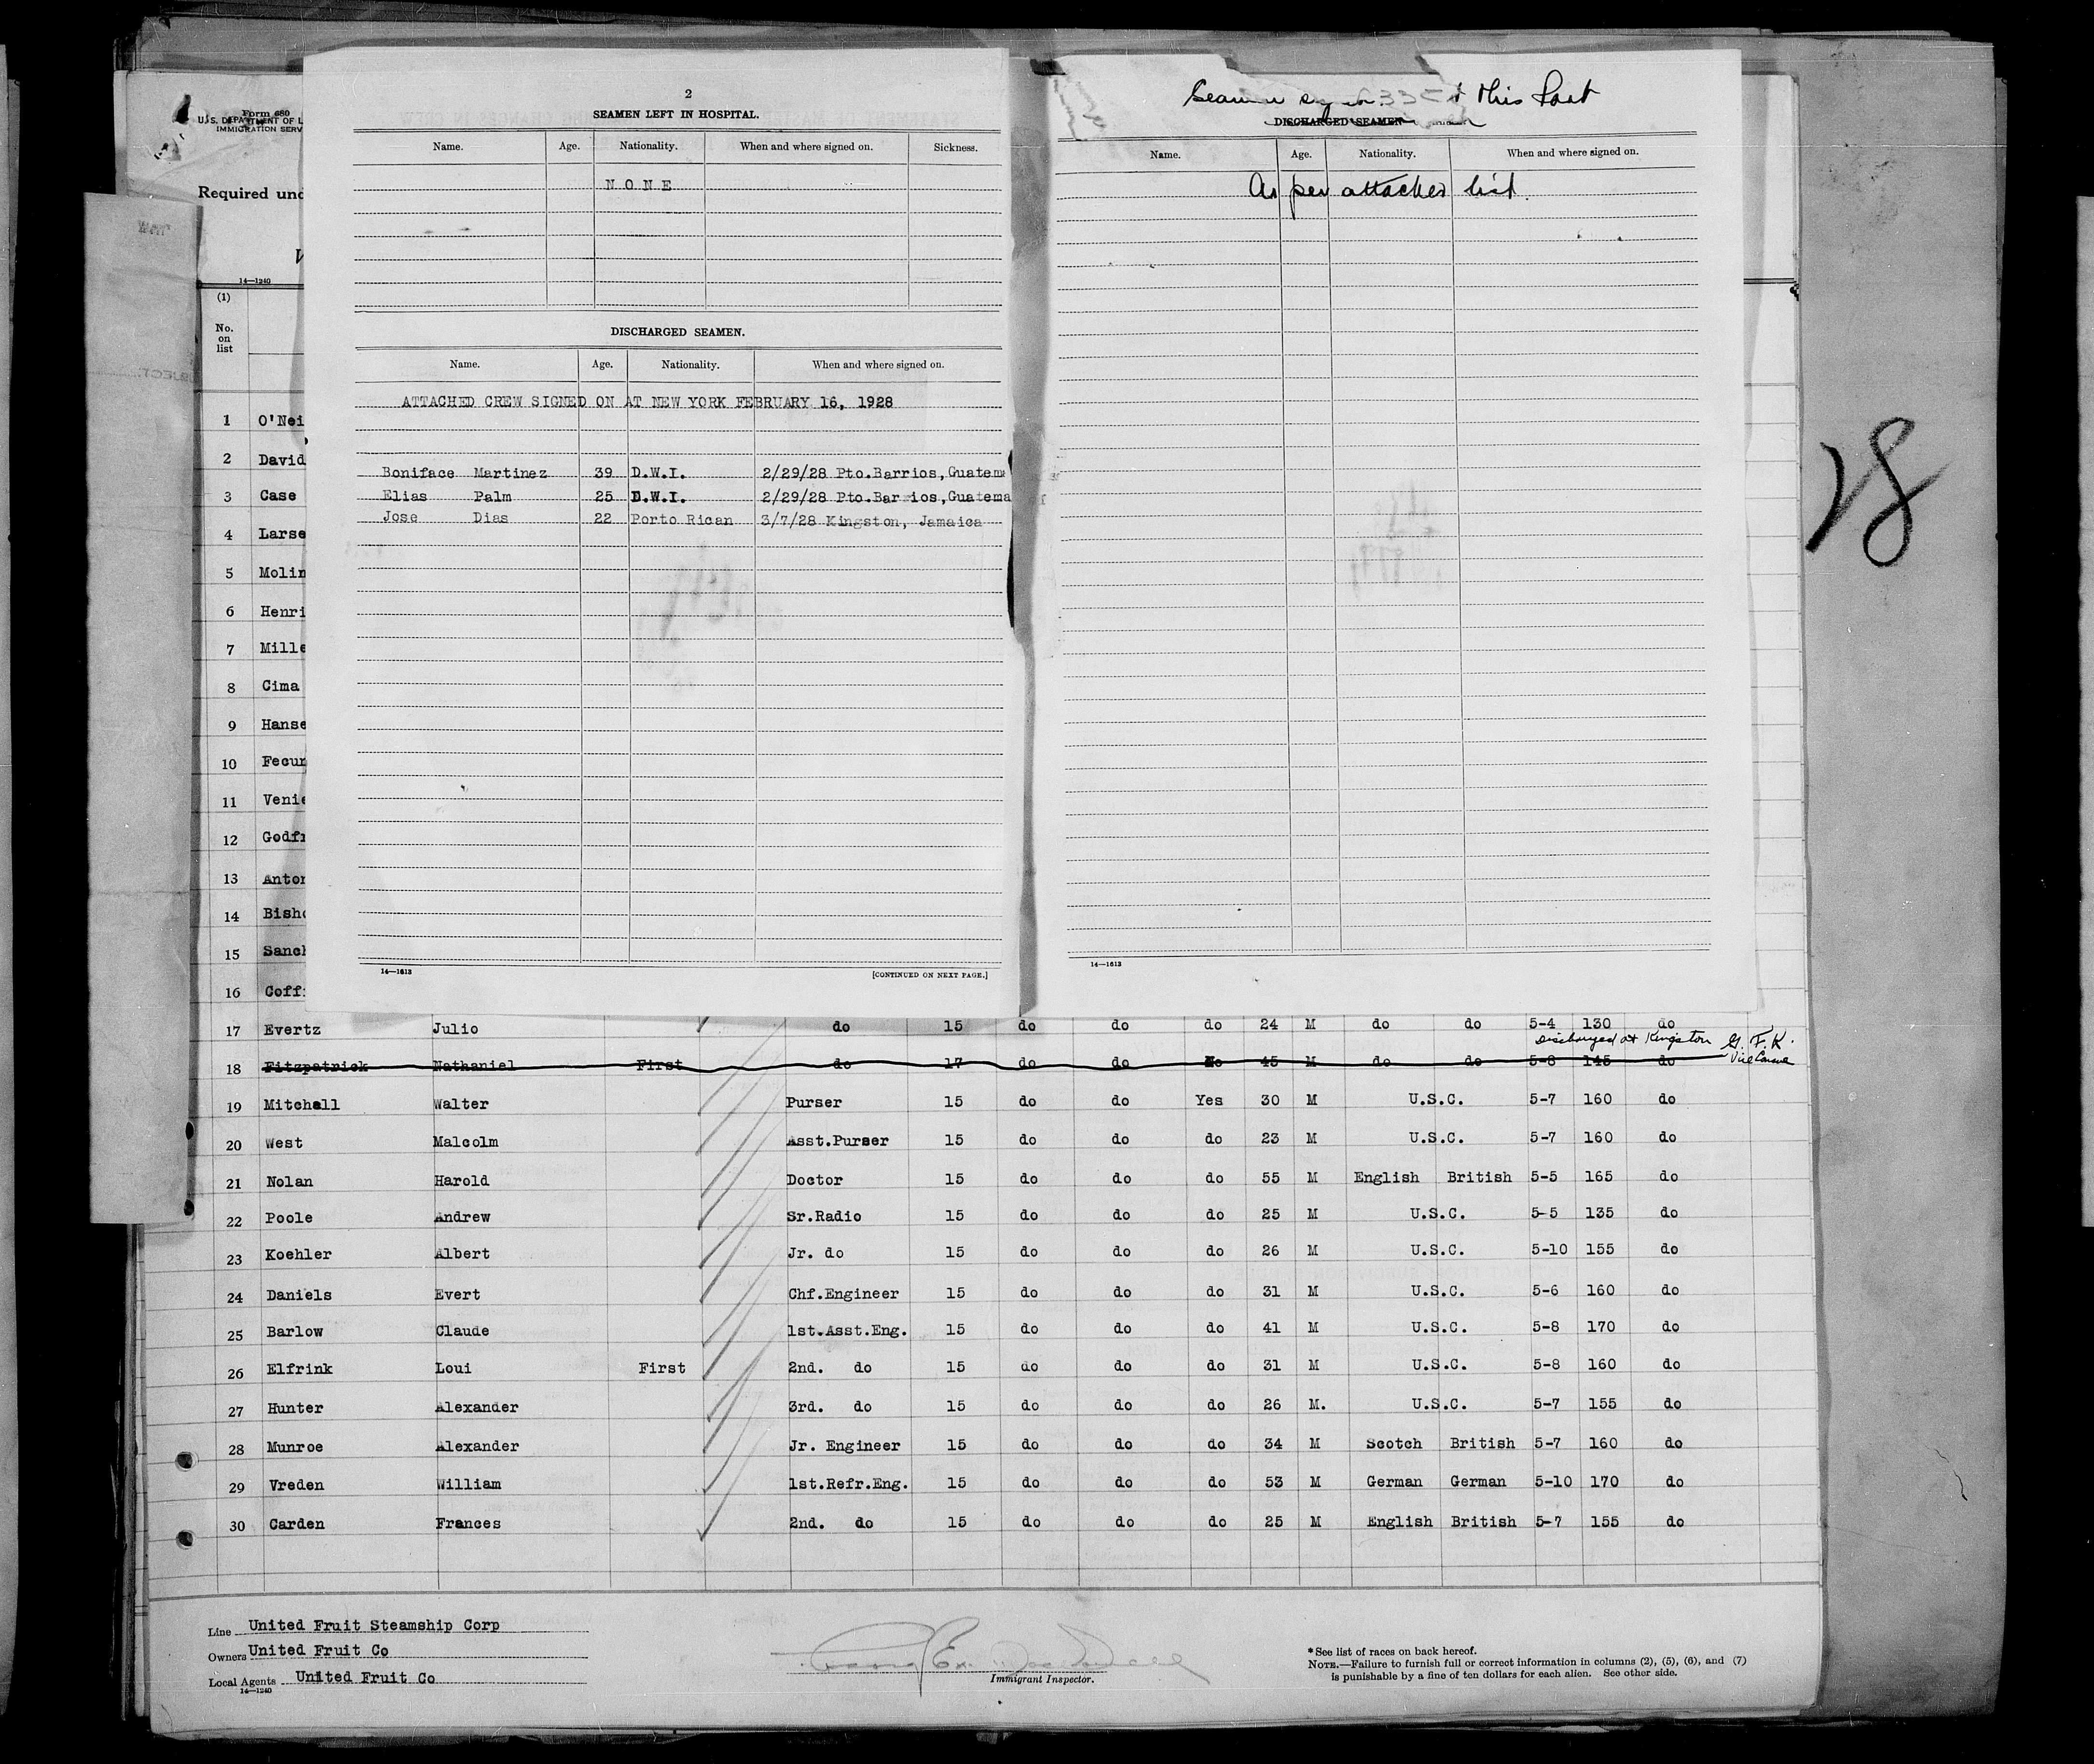 Form 680
U.S. DEPARTMENT OF L
IMMIGRATION SERV
Required und
14—1240
(1)
No.
on
list
1 O'Nei
2 David
3 Case
4 Larse
5 Molin
6 Henri
7 Mille
8 Cima
9 Hanse
10 Fecun
11 Venie
12 Godfr
13 Anton
14 Bisho
15 Sanch
16 Coff
2
SEAMEN LEFT IN HOSPITAL.
Name. Age. Nationality. When and where signed on. Sickness.
NONE
DISCHARGED SEAMEN.
Name. Age. Nationality. When and where signed on.
ATTACHED CREW SIGNED ON AT NEW YORK FEBRUARY 16, 1928
Boniface Martinez 39 D.W.I. 2/29/28 Pto.Barrios,Guatema
Elias Palm 25 D.W.I. 2/29/28 Pto.Barrios,Guatema
Jose Dias 22 Porto Rican 3/7/28 Kingston, Jamaica
14—1613 [CONTINUED ON NEXT PAGE.]
Seamen this Port
DISCHARGED SEAMEN
Name. Age. Nationality. When and where signed on.
As per attached list.
14—1613
28
17 Evertz Julio do 15 do do do 24 M do do 5-4 130 do
Discharged at Kingston G.F.K.
Vice Consul
18 Fitzpatrick Nathaniel First do 17 do do No 45 M do do 5-8 145 do
19 Mitchell Walter Purser 15 do do Yes 30 M U.S.C. 5-7 160 do
20 West Malcolm Asst.Purser 15 do do do 23 M U.S.C. 5-7 160 do
21 Nolan Harold Doctor 15 do do do 55 M English British 5-5 165 do
22 Poole Andrew Sr.Radio 15 do do do 25 M U.S.C. 5-5 135 do
23 Koehler Albert Jr. do 15 do do do 26 M U.S.C. 5-10 155 do
24 Daniels Evert Chf.Engineer 15 do do do 31 M U.S.C. 5-6 160 do
25 Barlow Claude 1st.Asst.Eng. 15 do do do 41 M U.S.C. 5-8 170 do
26 Elfrink Loui First 2nd. do 15 do do do 31 M U.S.C. 5-8 160 do
27 Hunter Alexander 3rd. do 15 do do do 26 M. U.S.C. 5-7 155 do
28 Munroe Alexander Jr. Engineer 15 do do do 34 M Scotch British 5-7 160 do
29 Vreden William 1st.Refr.Eng. 15 do do do 53 M German German 5-10 170 do
30 Carden Frances 2nd. do 15 do do do 25 M English British 5-7 155 do
Line United Fruit Steamship Corp
Owners United Fruit Co
Local Agents United Fruit Co
14—1240
Immigrant Inspector.
* See list of races on back hereof.
NOTE.—Failure to furnish full or correct information in columns (2), (5), (6), and (7)
is punishable by a fine of ten dollars for each alien. See other side.